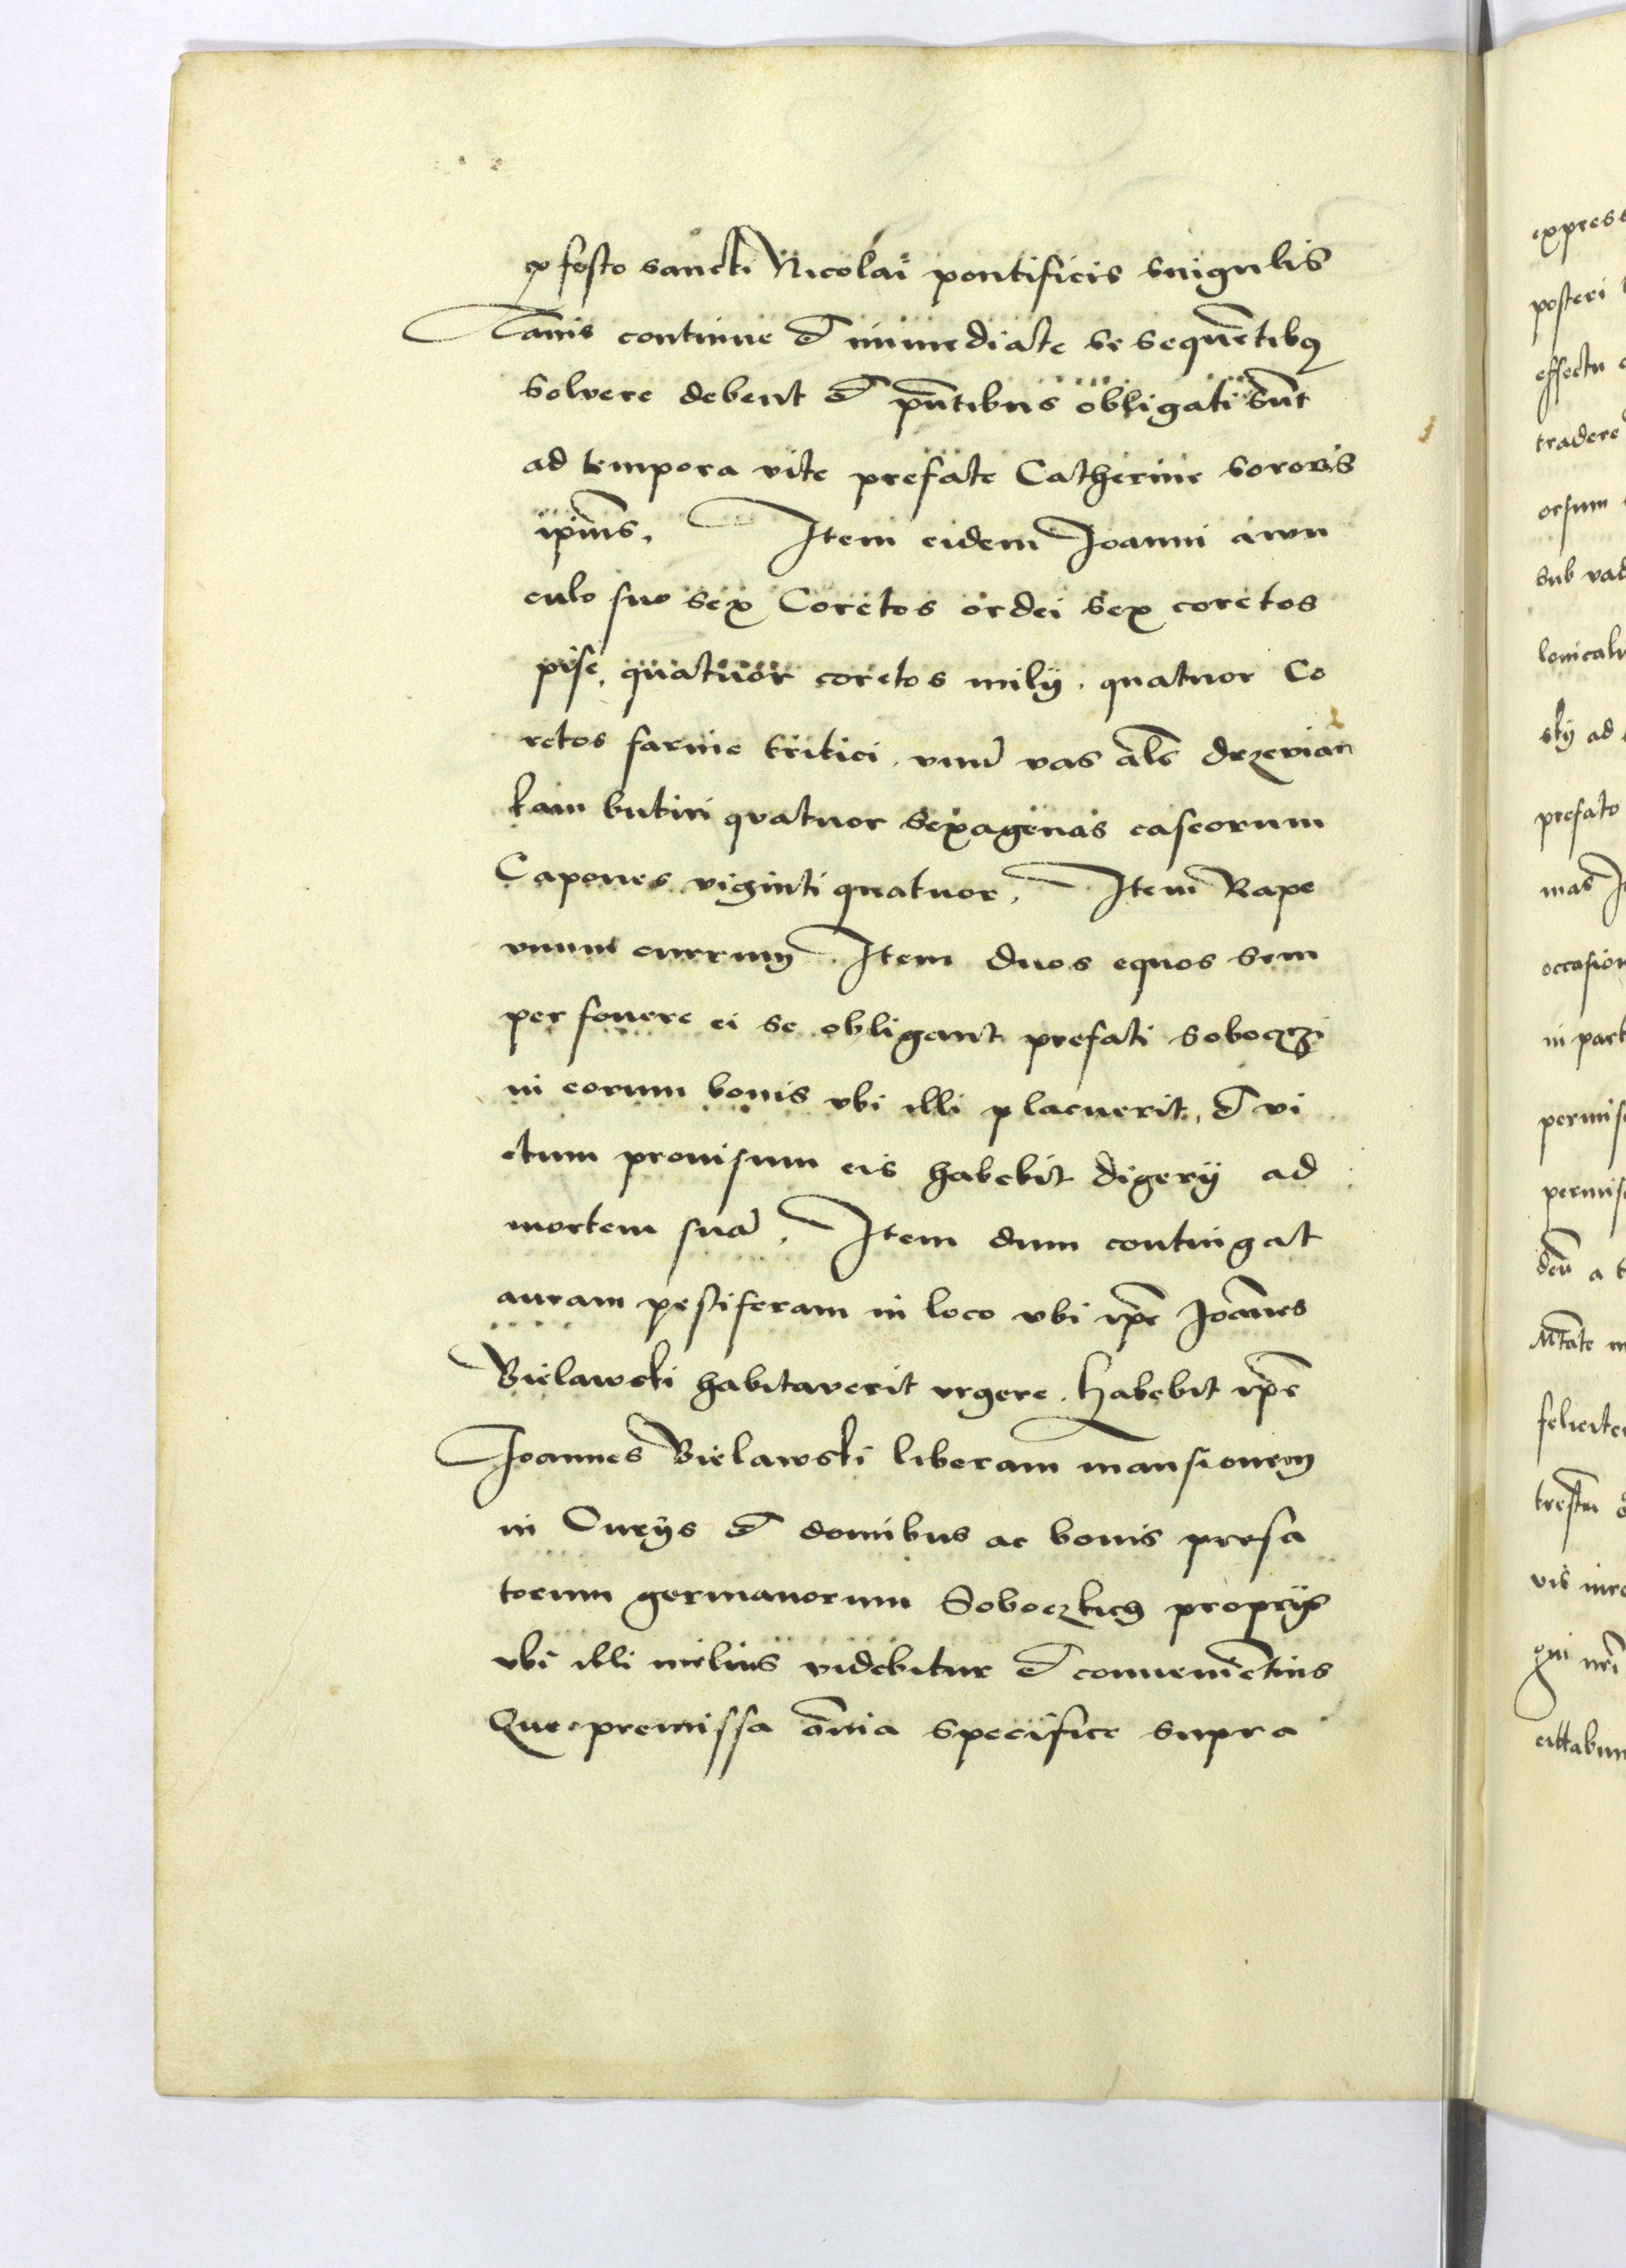 ex festo sancti Nicolai pontificis singulis
Annis continue et immediate se sequētibus
solvere debent et pñtibus obligati sūt
ad tempora vite prefate Catherine sororis
ipius. Item eidem Joanni avun
culo suo sex Coretos ordei sex coretos
pise, quatuor coretos milij. quatuor Co
retos farine tritici, vnū vas als drzevian
kam butiri quatuor sexagenas caseorum
Capones viginti quatuor. Item Rape
vnum currum Item duos equos sem
per fouere ei se obligant prefati Soboczci
in eorum bonis vbi illi placuerit, et vi
ctum prouisum eis habebit digerij ad
mortem suā. Item dum contingat
auram pestiferam in loco vbi ipe Joānes
Bielawski habitaverit vrgere. habebit ipe
Joannes Bielawski liberam mansionem
in Curijs et domibus ac bonis prefa
torum germanorum Soboczkich proprijs
vbi illi melius videbitur et conuenietius
Que premissa ōmia specifice supra
express
posteri
effectu
tradere
orsum
sub vad
lonicalu
sky ad
prefato
mas
occasion
in part
permis
permis
a
felicite
vis
qui nri